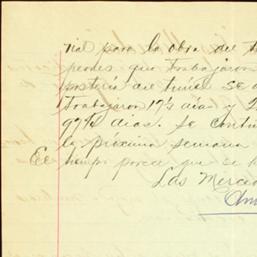 rial para la obra del t
peones que trabajaron
postería del túnel se
Trabajaron 17¾ días y 2
99¾ días. Se contin
la próxima semana
El tiempo parece que se h
Las Merced